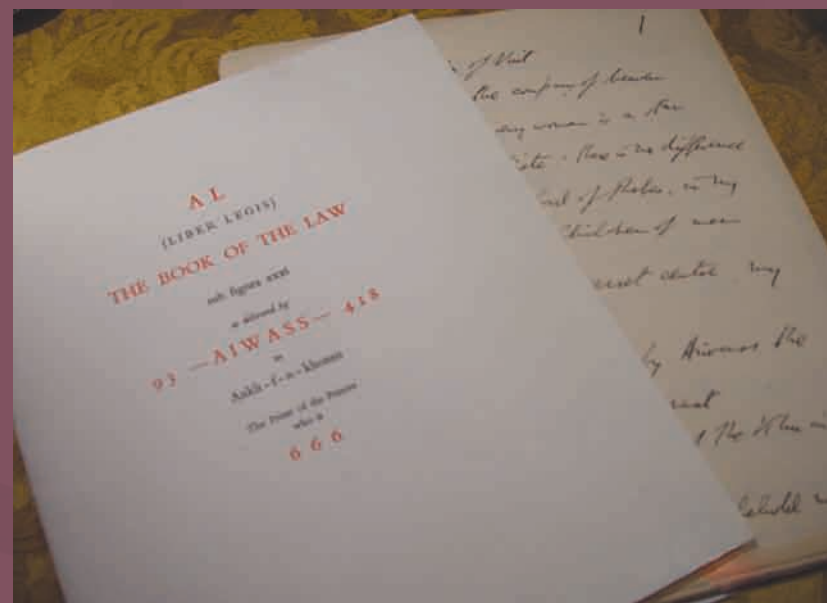 A L
(LIBER LEGIS)
THE BOOK OF THE LAW
sub figura xxxi
as delivered by
93 — AIWASS — 418
to
Ankh-f-n-khonsu
The Priest of the Princes
who is
6 6 6
1
of Nuit
the company of heaven
woman is a star
there is no difference
of Thebes, in my
Children of men
centre my
by Aiwass the
the